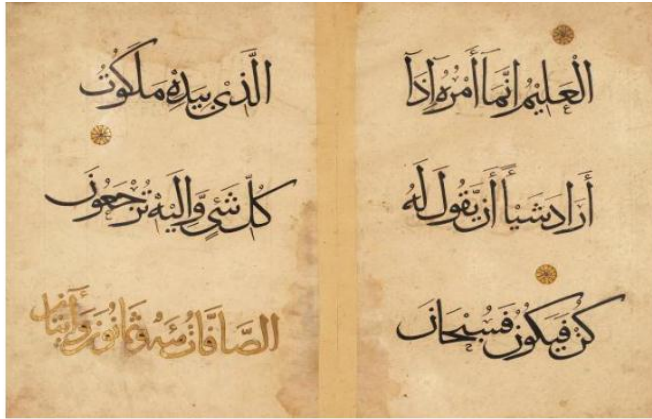 الْعَلِيْمُ اِنَّمَآ أَمْرُهٗٓ اِذَآ
أَرَادَ شَيْأً أَنْ يَّقُولَ لَهُ
كُنْ فَيَكُوْنُ فَسُبْحَانَ
الَّذِىْ بِيَدِهٖ مَلَكُوْتُ
كُلِّ شَيْءٍ وَّاِلَيْهِ تُرْجَعُوْنَ
الصَّافَّات مئه وثمانون وأيتان